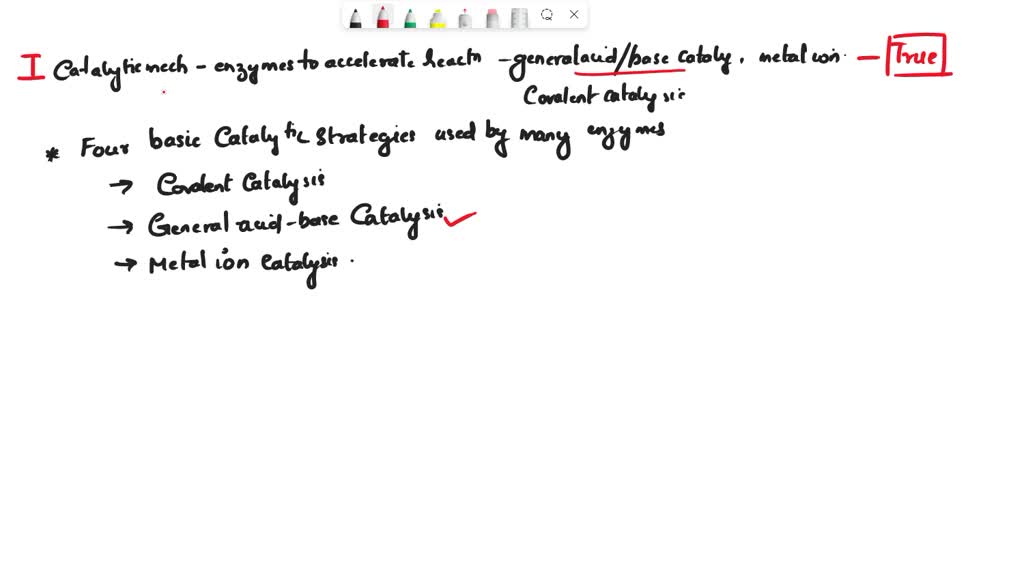 I Catalytic mech - enzymes to accelerate reactn - general acid/base cataly, metal ion. - True
Covalent catalysis
* Four basic Catalytic Strategies used by many enzymes
→ Covalent Catalysis
→ General acid-base Catalysis ✓
→ Metal ion Catalysis.